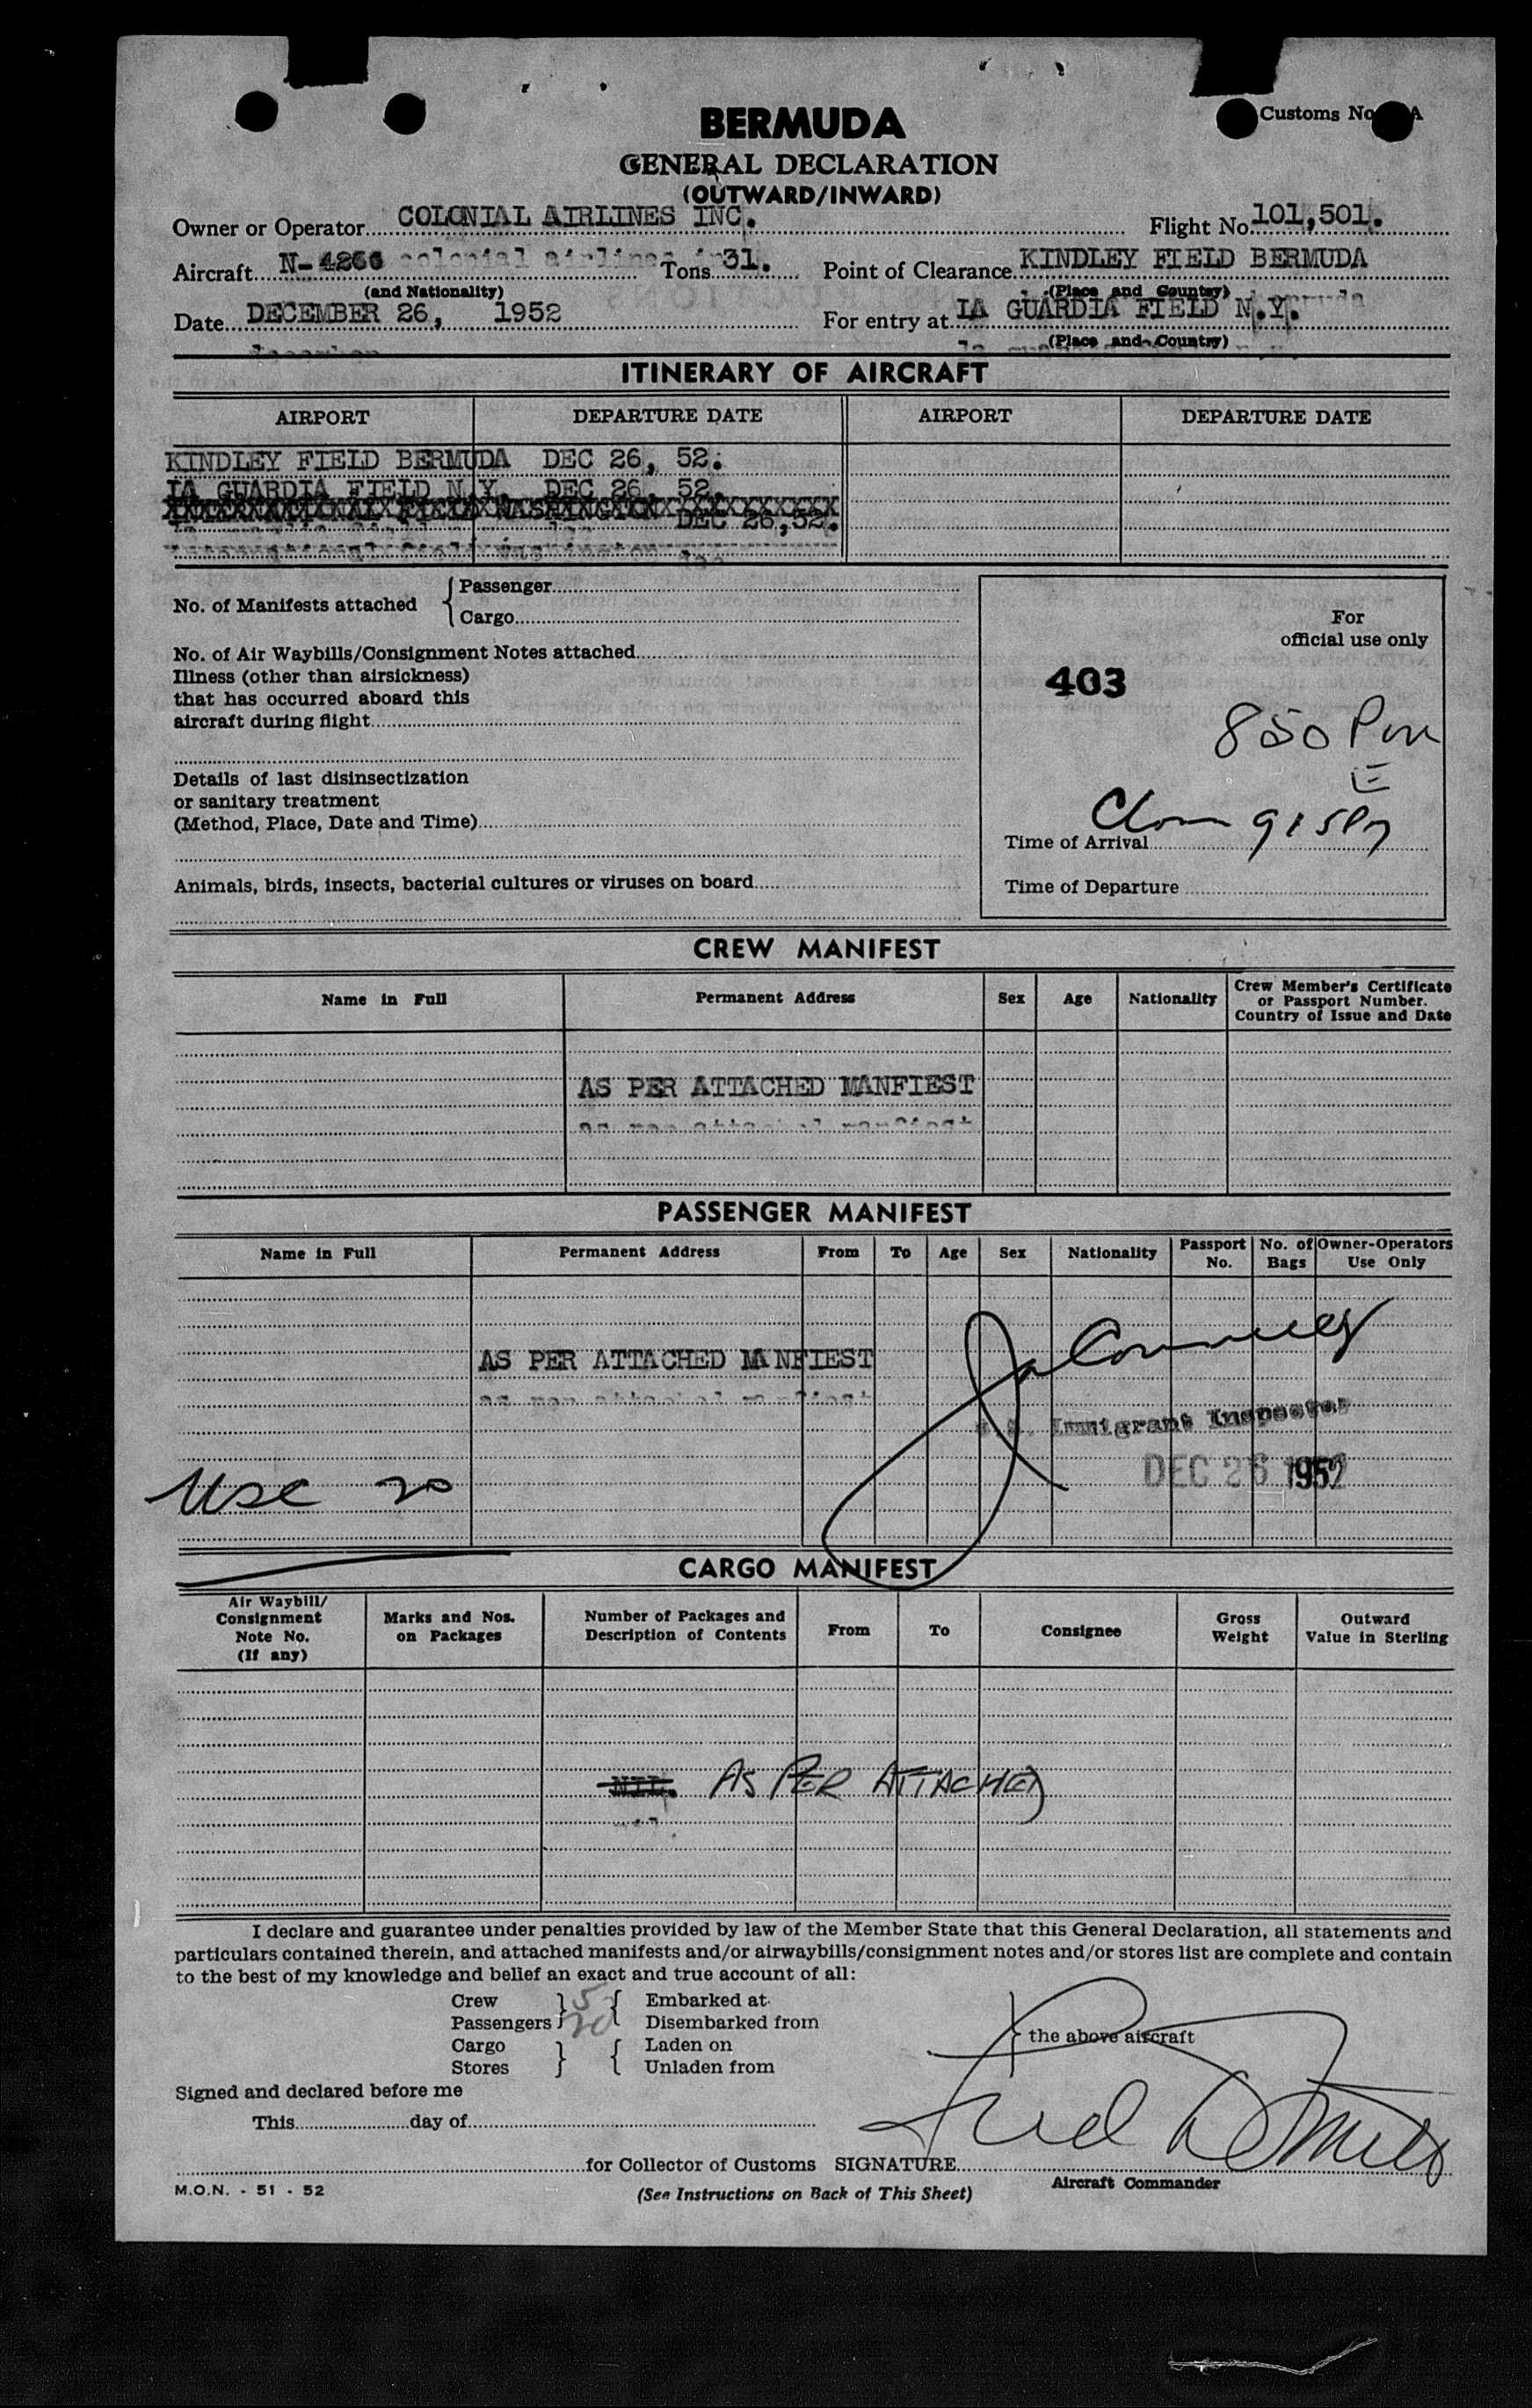 Customs No. A
BERMUDA
GENERAL DECLARATION
(OUTWARD/INWARD)
Owner or Operator COLONIAL AIRLINES INC. Flight No. 101,501.
Aircraft N- Tons 31. Point of Clearance KINDLEY FIELD BERMUDA
(and Nationality) (Place and Country)
Date DECEMBER 26, 1952 For entry at LA GUARDIA FIELD N.Y.
(Place and Country)
ITINERARY OF AIRCRAFT
AIRPORT DEPARTURE DATE AIRPORT DEPARTURE DATE
KINDLEY FIELD BERMUDA DEC 26, 52.
LA GUARDIA FIELD N.Y. DEC 26, 52.
DEC 26,52.
No. of Manifests attached { Passenger
Cargo
For
official use only
No. of Air Waybills/Consignment Notes attached
Illness (other than airsickness)
that has occurred aboard this
aircraft during flight
403
850 Pm
E
Details of last disinsectization
or sanitary treatment
(Method, Place, Date and Time)
915 Pm
Time of Arrival
Animals, birds, insects, bacterial cultures or viruses on board
Time of Departure
CREW MANIFEST
Name in Full Permanent Address Sex Age Nationality Crew Member's Certificate
or Passport Number.
Country of Issue and Date
AS PER ATTACHED MANFIEST
PASSENGER MANIFEST
Name in Full Permanent Address From To Age Sex Nationality Passport No. No. of Bags Owner-Operators Use Only
AS PER ATTACHED MANFIEST
Immigrant Inspector
DEC 26 1952
USC 20
CARGO MANIFEST
Air Waybill/
Consignment
Note No.
(If any)
Marks and Nos.
on Packages
Number of Packages and
Description of Contents
From To Consignee
Gross
Weight
Outward
Value in Sterling
NIL. AS PER ATTACHED
I declare and guarantee under penalties provided by law of the Member State that this General Declaration, all statements and
particulars contained therein, and attached manifests and/or airwaybills/consignment notes and/or stores list are complete and contain
to the best of my knowledge and belief an exact and true account of all:
Crew } 5 { Embarked at
Passengers } 20 { Disembarked from
} the above aircraft
Cargo } { Laden on
Stores } { Unladen from
Signed and declared before me
This day of
for Collector of Customs SIGNATURE
M.O.N. - 51 - 52 (See Instructions on Back of This Sheet) Aircraft Commander